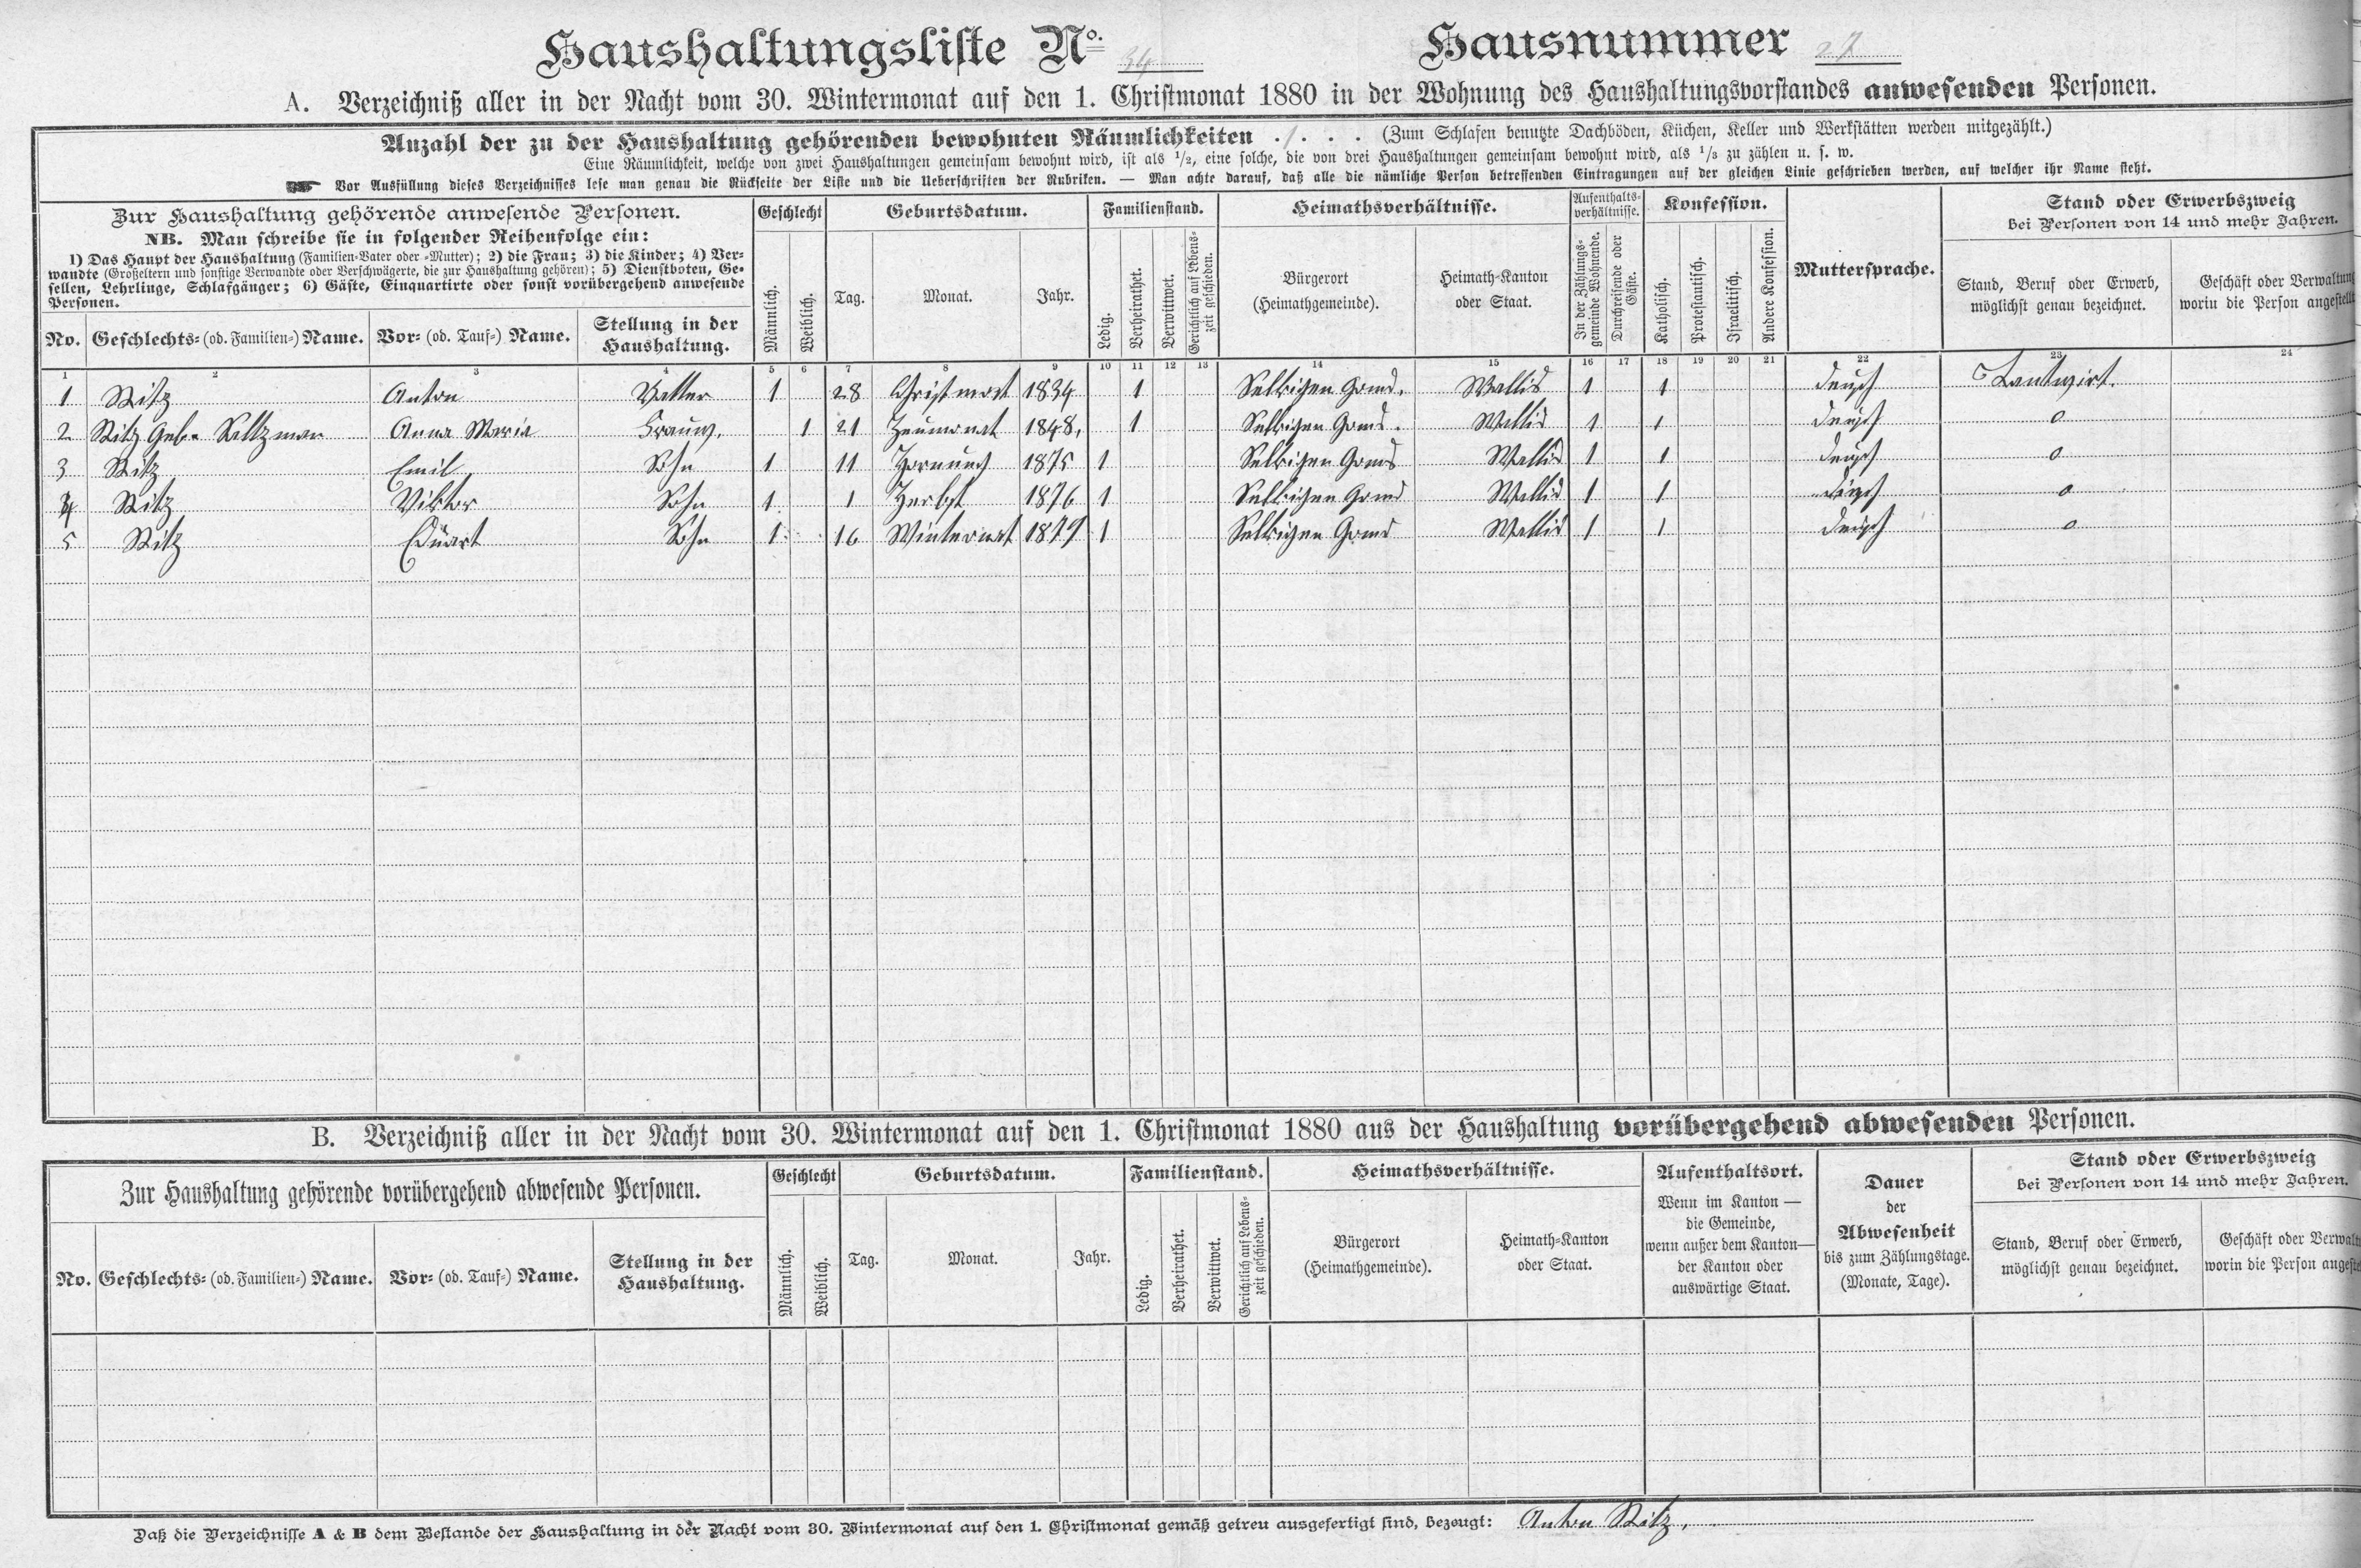 Haushaltungsliste No. 34 Hausnummer 27
A. Verzeichniß aller in der Nacht vom 30. Wintermonat auf den 1. Christmonat 1880 in der Wohnung des Haushaltungsvorstandes anwesenden Personen.
Anzahl der zu der Haushaltung gehörenden bewohnten Räumlichkeiten . 1 . . . (Zum Schlafen benutzte Dachböden, Küchen, Keller und Werkstätten werden mitgezählt.)
Eine Räumlichkeit, welche von zwei Haushaltungen gemeinsam bewohnt wird, ist als 1/2, eine solche, die von drei Haushaltungen gemeinsam bewohnt wird, als 1/3 zu zählen u. s. w.
Vor Ausfüllung dieses Verzeichnisses lese man genau die Rückseite der Liste und die Ueberschriften der Rubriken. — Man achte darauf, daß alle die nämliche Person betreffenden Eintragungen auf der gleichen Linie geschrieben werden, auf welcher ihr Name steht.
Zur Haushaltung gehörende anwesende Personen.
NB. Man schreibe sie in folgender Reihenfolge ein:
1) Das Haupt der Haushaltung (Familien-Vater oder -Mutter); 2) die Frau; 3) die Kinder; 4) Ver-
wandte (Großeltern und sonstige Verwandte oder Verschwägerte, die zur Haushaltung gehören); 5) Dienstboten, Ge-
sellen, Lehrlinge, Schlafgänger; 6) Gäste, Einquartirte oder sonst vorübergehend anwesende
Personen.
No. Geschlechts- (od. Familien-) Name. Vor- (od. Tauf-) Name. Stellung in der
Haushaltung.
Geschlecht
Männlich. Weiblich.
Geburtsdatum.
Tag. Monat. Jahr.
Familienstand.
Ledig. Verheirathet. Verwittwet. Gerichtlich auf Lebens-
zeit geschieden.
Heimathsverhältnisse.
Bürgerort
(Heimathgemeinde).
Heimath-Kanton
oder Staat.
Aufenthalts-
verhältnisse.
In der Zählungs-
gemeinde Wohnende.
Durchreisende oder
Gäste.
Konfession.
Katholisch. Protestantisch. Israelitisch. Andere Konfession.
Muttersprache.
Stand oder Erwerbszweig
bei Personen von 14 und mehr Jahren.
Stand, Beruf oder Erwerb,
möglichst genau bezeichnet.
Geschäft oder Verwaltung
worin die Person angestellt
1 2 3 4 5 6 7 8 9 10 11 12 13 14 15 16 17 18 19 20 21 22 23 24
1 Ritz Anton Vatter 1 28 Christmont 1834 1 Selkigen Goms. Wallis 1 1 deusch Lantwirt.
2 Ritz Geb. Anna Maria Frauw. 1 21 Heumonat 1848, 1 Selkigen Goms. Wallis 1 1 deusch o
3 Ritz Emil Sohn 1 11 Hornung 1875 1 Selkigen Goms Wallis 1 1 deusch o
4 Ritz Viktor Sohn 1 1 Herbst 1876 1 Selkigen Goms Wallis 1 1 deusch o
5 Ritz Eduart Sohn 1 16 1879 1 Selkigen Goms Wallis 1 1 deusch o
B. Verzeichniß aller in der Nacht vom 30. Wintermonat auf den 1. Christmonat 1880 aus der Haushaltung vorübergehend abwesenden Personen.
Zur Haushaltung gehörende vorübergehend abwesende Personen.
No. Geschlechts- (od. Familien-) Name. Vor- (od. Tauf-) Name. Stellung in der
Haushaltung.
Geschlecht
Männlich. Weiblich.
Geburtsdatum.
Tag. Monat. Jahr.
Familienstand.
Ledig. Verheirathet. Verwittwet. Gerichtlich auf Lebens-
zeit geschieden.
Heimathsverhältnisse.
Bürgerort
(Heimathgemeinde).
Heimath-Kanton
oder Staat.
Aufenthaltsort.
Wenn im Kanton —
die Gemeinde,
wenn außer dem Kanton—
der Kanton oder
auswärtige Staat.
Dauer
der
Abwesenheit
bis zum Zählungstage.
(Monate, Tage).
Stand oder Erwerbszweig
bei Personen von 14 und mehr Jahren.
Stand, Beruf oder Erwerb,
möglichst genau bezeichnet.
Geschäft oder Verwalt
worin die Person angeste
Daß die Verzeichnisse A & B dem Bestande der Haushaltung in der Nacht vom 30. Wintermonat auf den 1. Christmonat gemäß getreu ausgefertigt sind, bezeugt: Anton Ritz.